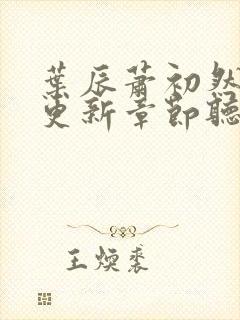 葉辰蕭初然
更新章節聽
王煥裘